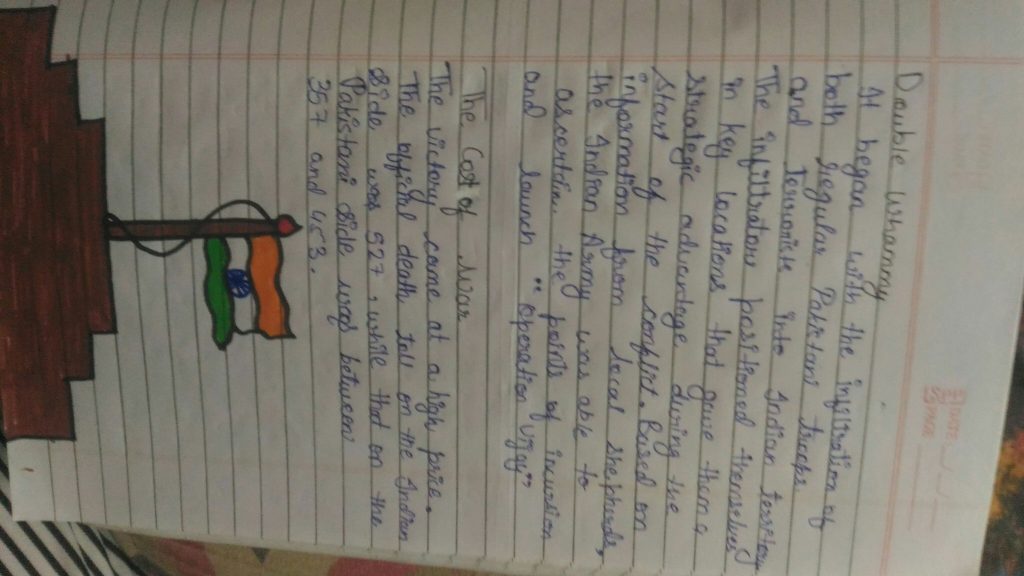 DATE
PAGE
Double Whammy
It began with the infiltration of
both regular Pakistani troops
and terrorists into Indian territory
The infiltrators positioned themselves
in key locations that gave them a
strategic advantage during the
start of the conflict. Based on
information from local shepherds,
the Indian Army was able to
ascertain the points of incursion
and launch "operation vijay"
The Cost of War
The victory come at a high price.
The official death toll on the Indian
side was 527, while that on the
Pakistani side was between
357 and 453.